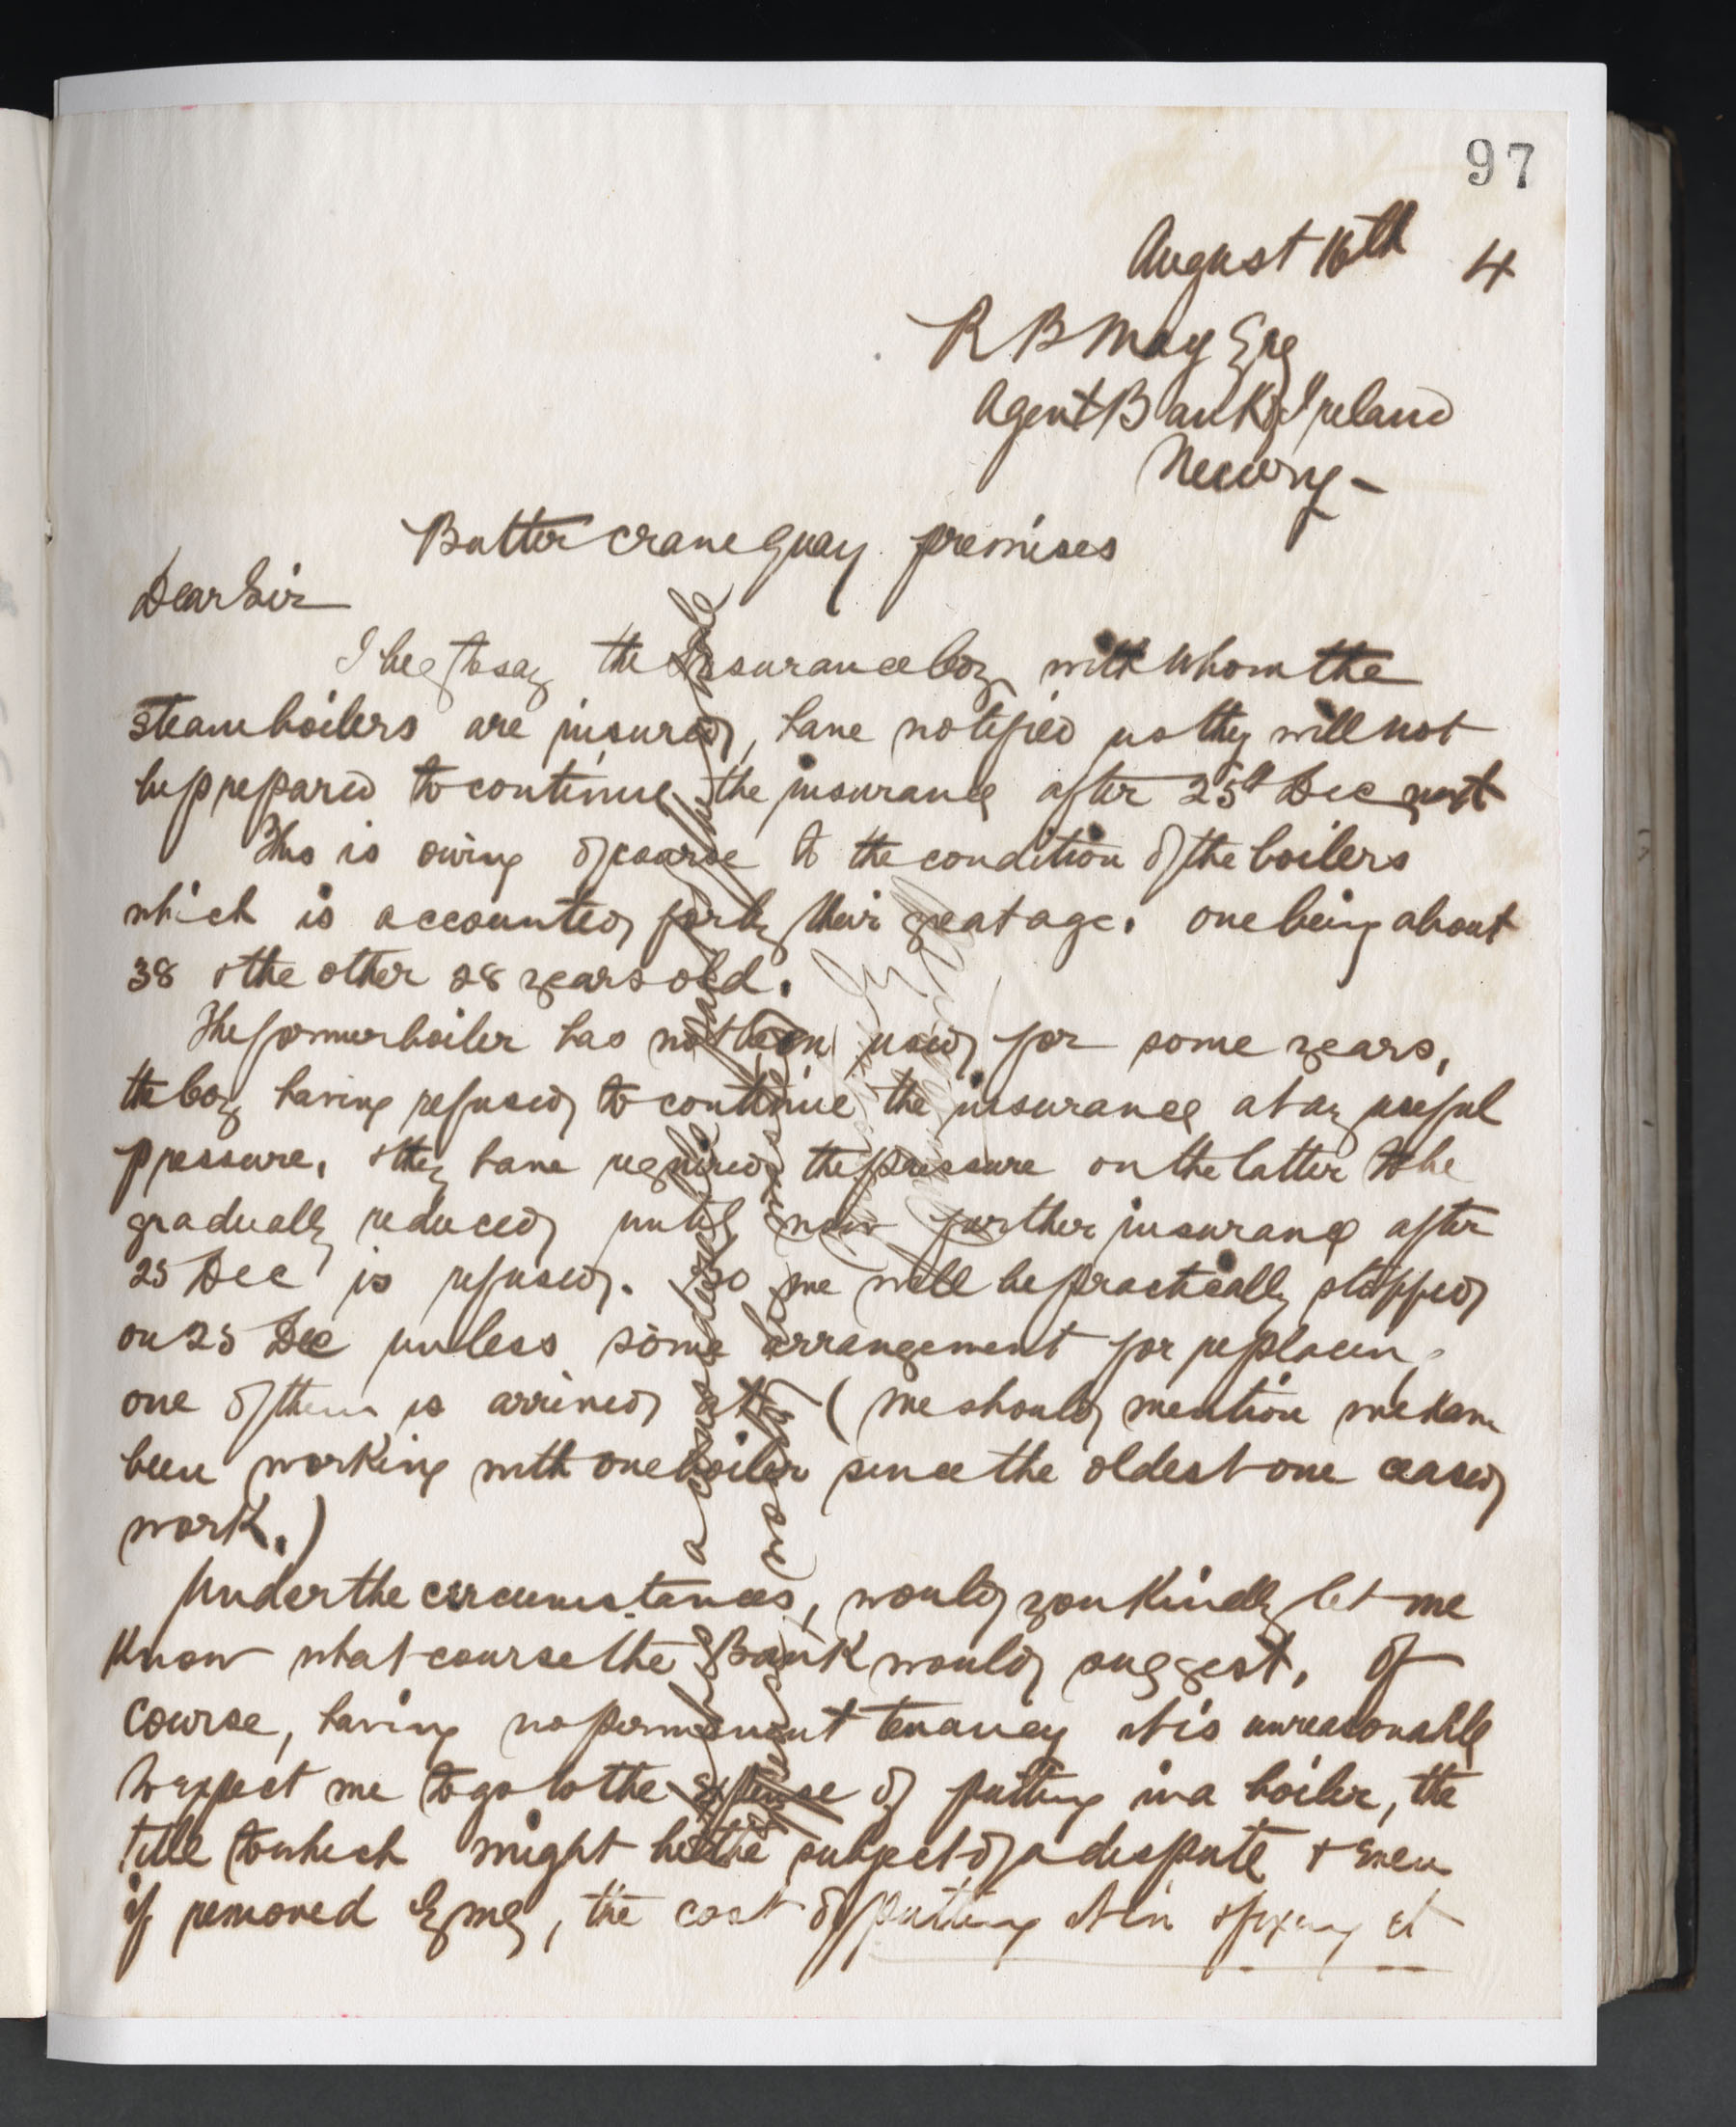 97
August 16th 4
R B May Esq
Agent Bank of Ireland
Newry -
Butter Crane Quay premises
Dear Sir
I beg to say the Insurance Coy with whom the
steam boilers are insured, have notified us they will not
be prepared to continue the insurance after 25th Dec next
This is owing of course to the condition of the boilers
which is accounted for by their great age. one being about
38 & the other 28 years old.
The former boiler has not been used for some years,
the Coy having refused to continue the insurance at any useful
pressure. & they have required the pressure on the latter to be
gradually reduced until now further insurance after
25 Dec is refused. So we will be practically stopped
on 25 Dec unless some arrangement for replacing
one of them is arrived at (we should mention we have
been working with one boiler since the oldest one ceased
work.)
Under the circumstances, would you kindly let me
know what course the Bank would suggest. Of
course, having no permanent tenancy it is unreasonable
to expect me to go to the expense of putting in a boiler, the
title to which might be the subject of a dispute & even
if removed by me, the cost of putting it in & fixing it